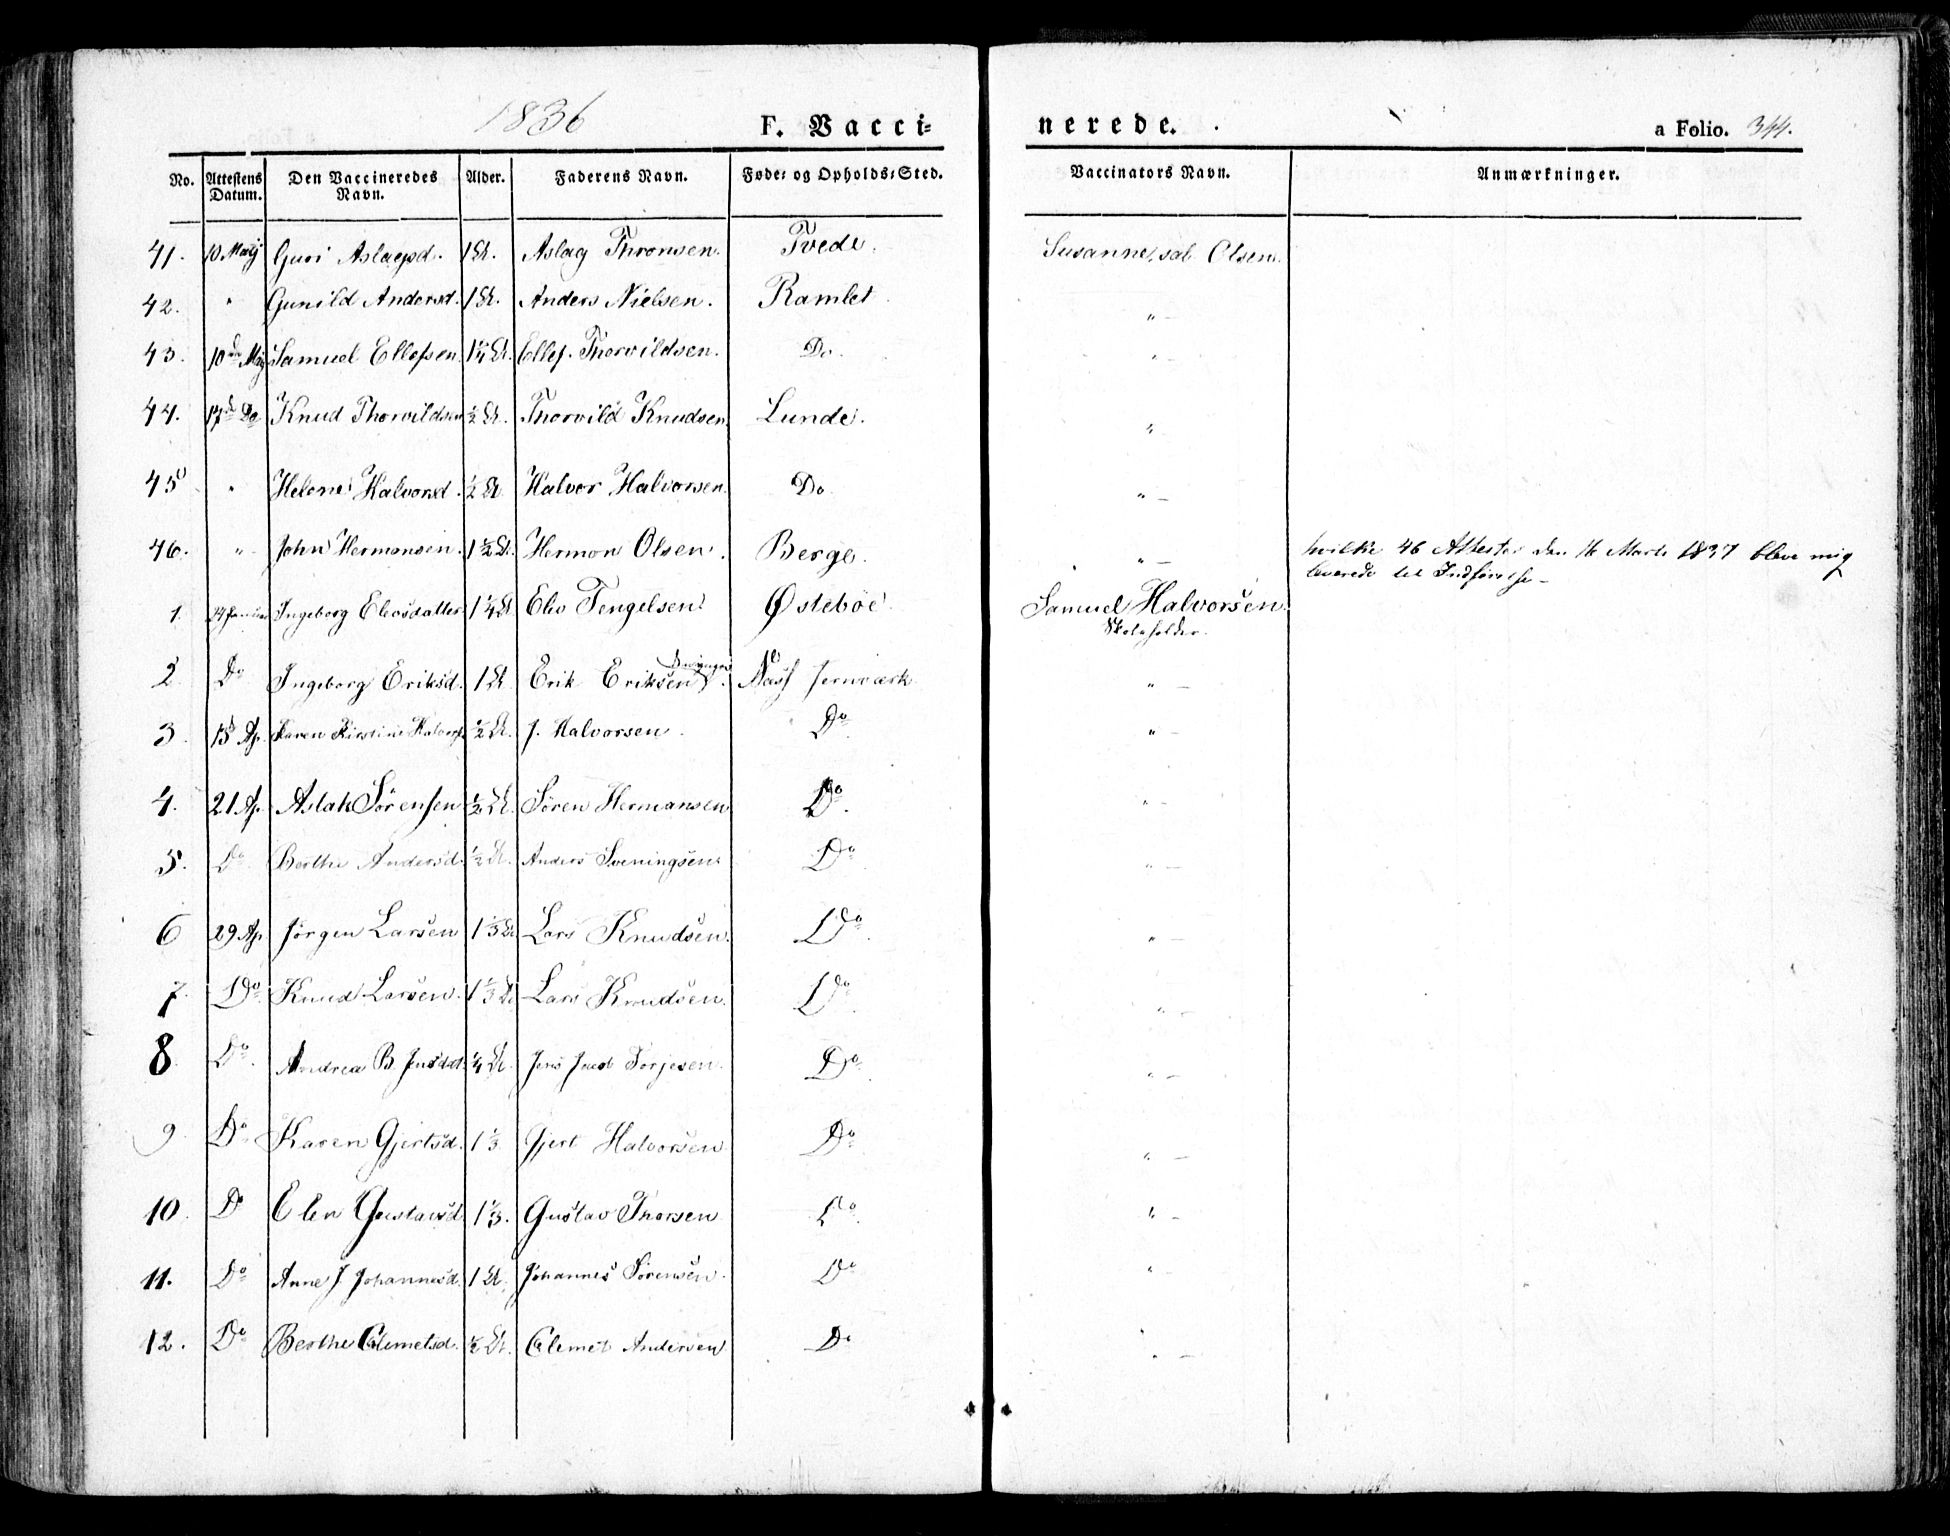 1836
F. Vacci=
nerede.
a Folio. 344.
No. Attestens Datum. Den Vaccineredes Navn. Alder. Faderens Navn. Føde- og Opholds-Sted. Vaccinators Navn. Anmærkninger.
41. 10 Maij Guri Aslagsd. 1 Aslag Thronsen. Tvede. Susanne, sal. Olsens.
42. " Gunild Andersd. 1 Anders Nielsen. Ramlet " —
43. 10de Maj Samuel Ellefsen 1¼ Ellef Thorvildsen. Do. " —
44. 17de Do Knud Thorvildsen ½ Thorvild Knudsen Lunde. "
45 " Helene Halvorsd. ½ Halvor Halvorsen Do. " —
46. " John Hermansen. 1½ Herman Olsen. Berge. " — hvilke 46 Attester den 16 Marts 1837 bleve mig
leverede til Indførelse —
1. 24 Ingeborg Elevsdatter 1¼ Elev Tengelsen Østebøe. Samuel Halvorsen
Skoleholder.
2. Do Ingeborg Eriksd. 1 Erik Eriksen Næss Jernværk " —
3 15 Ap. Karen Kirstine ½ J. Halvorsen Do " —
4. 21 Ap. Aslak Sørensen ½ Søren Hermansen Do. " —
5. Do Berthe Andersd. ½ Anders Sveningsen Do " —
6 29 Ap. Jørgen Larsen 1⅓ Lars Knudsen. Do. " —
7. Do. Knud Larsen. 1⅓ Lars Knudsen. Do " —
8 Do. Andrea B. Jensdat. ¼ Jens Jacob Torjesen. Do " —
9. Do. Karen Gjertsd. 1⅓ Gjert Halvorsen Do " —
10. Do Elen Gustavsd. 1⅓. Gustav Thorsen Do. " —
11. Do Anne J Johannesd. 1 Johannes Sørensen. Do " —
12. Do Berthe Clemetsd. ½ Clemet Andersen Do " —